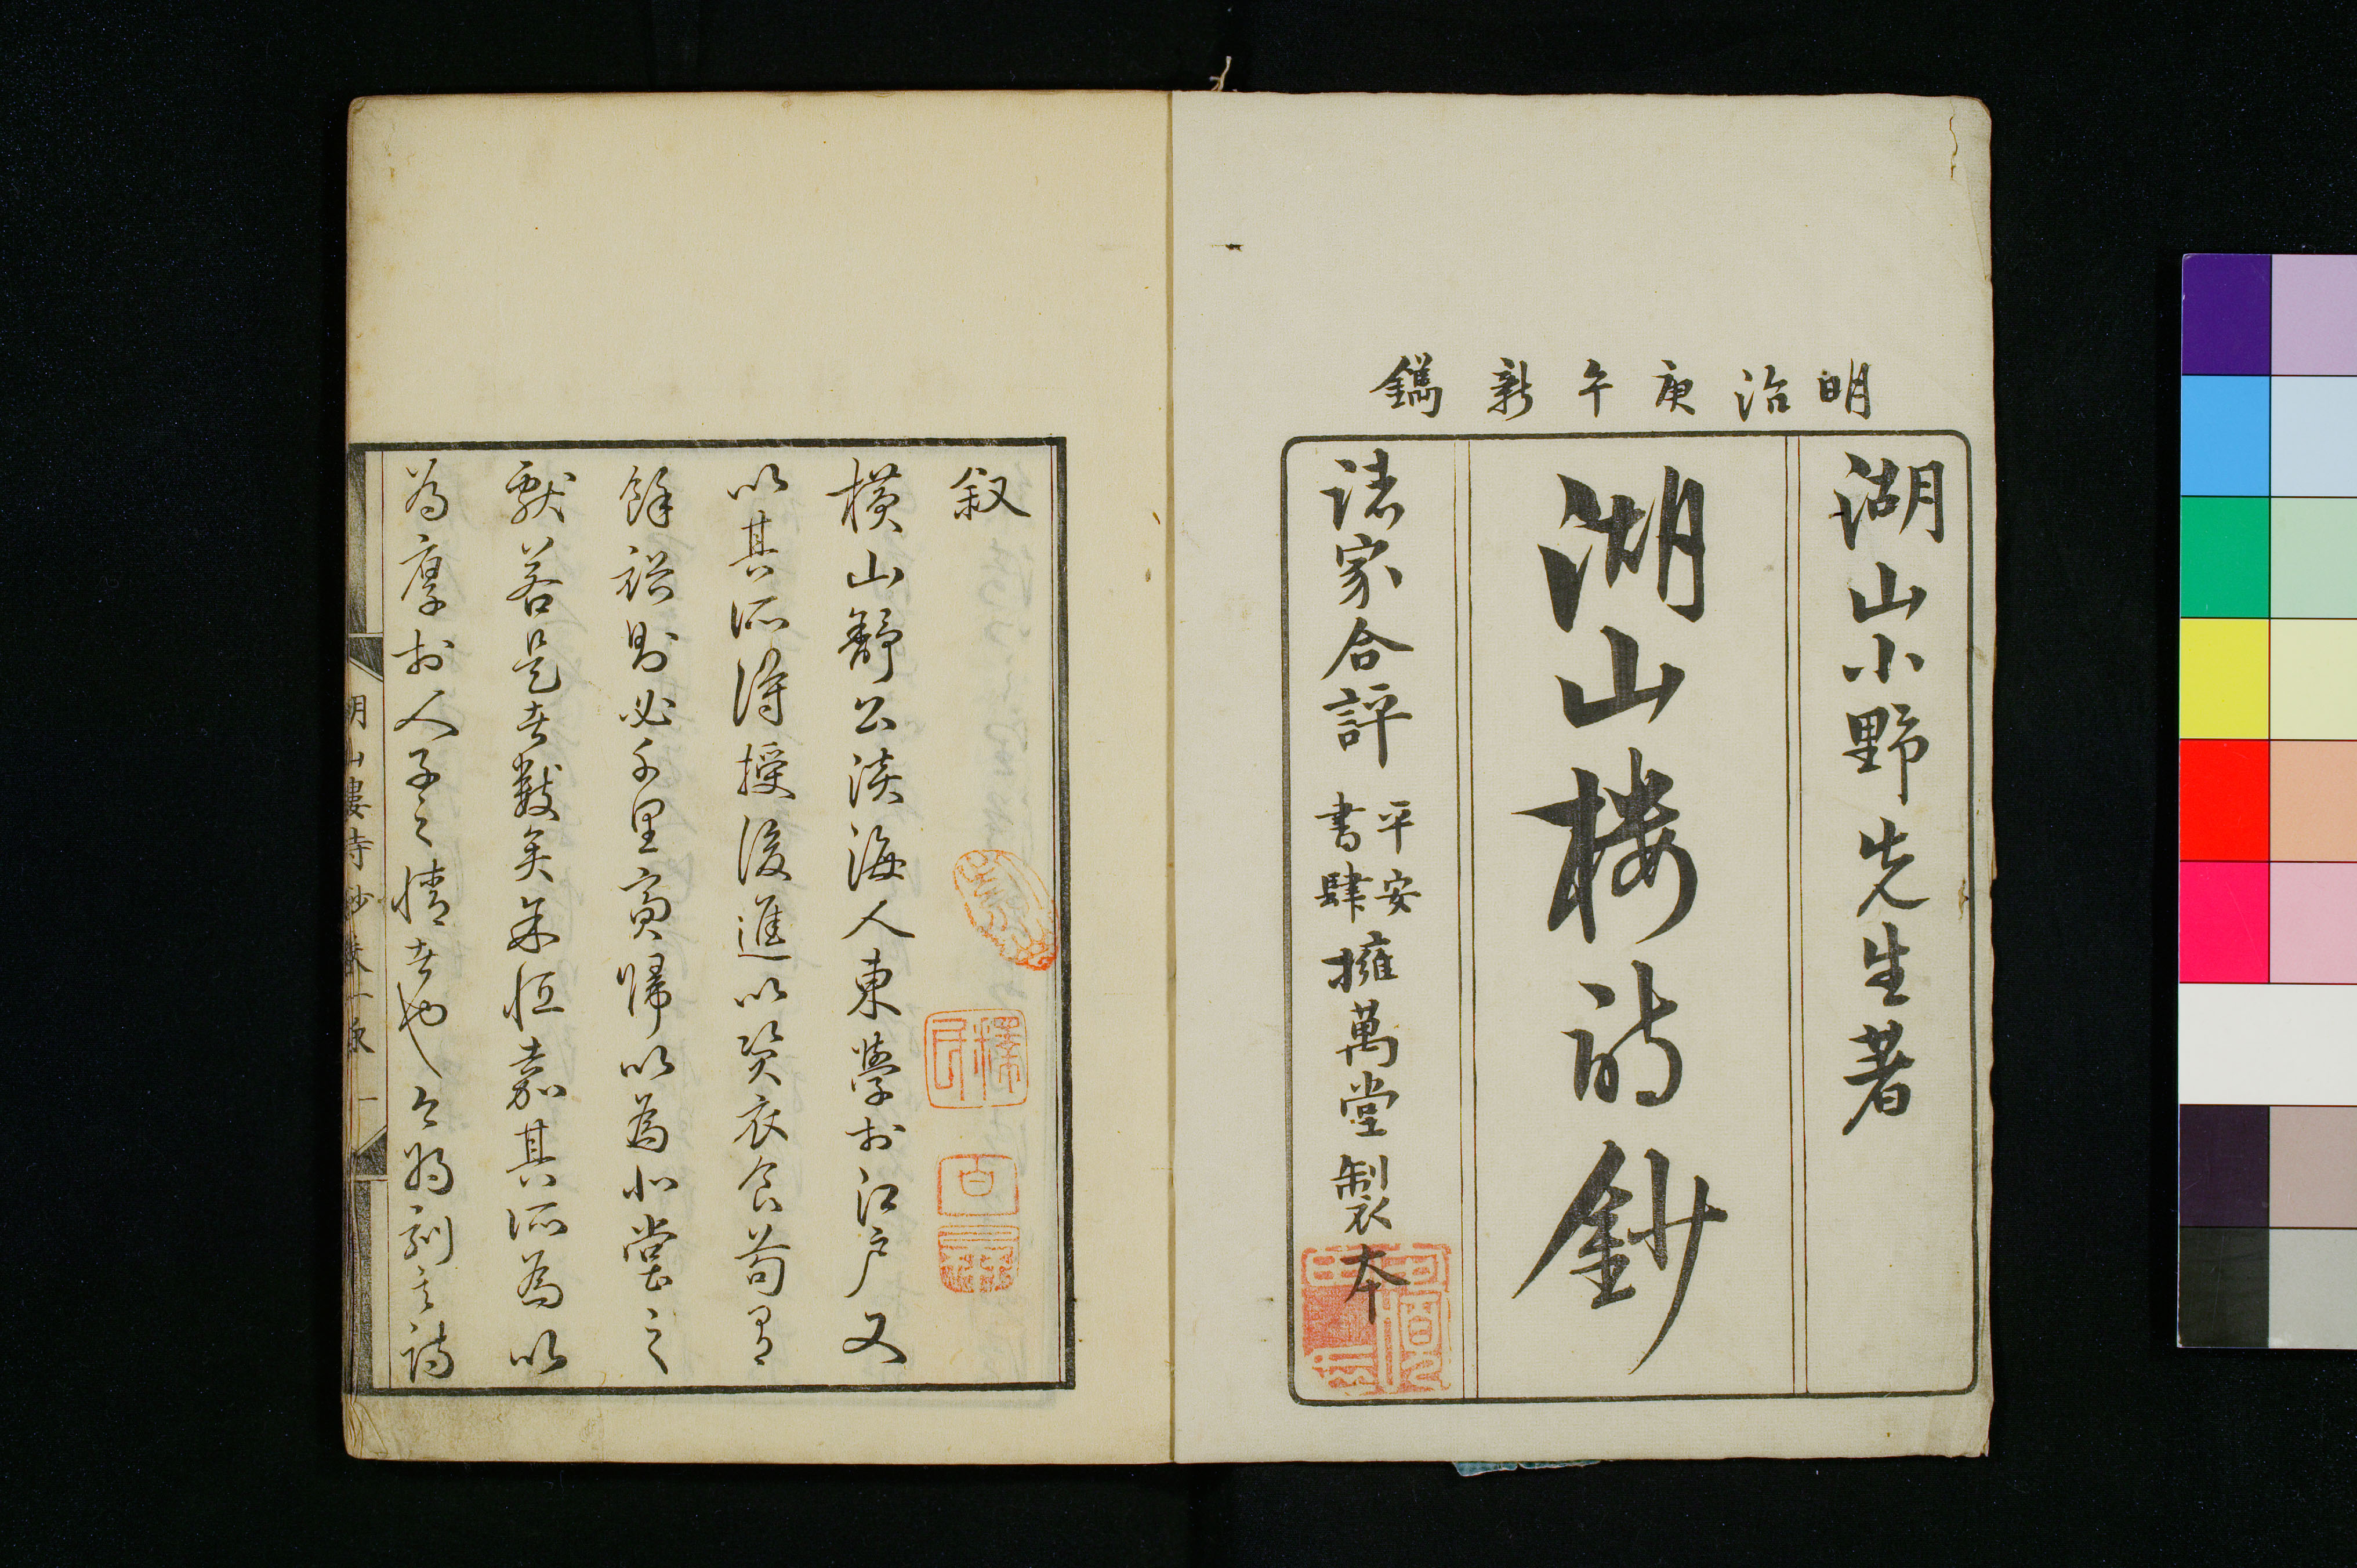 明治庚午新鐫
湖山小野先生著
湖山楼詩鈔
諸家合評
平安
書肆
擁萬堂製本
叙
横山舒公淡海人東學於江戸又
以其所得授後進以資衣食苟有
餘裕則必千里齎歸以為北堂之
獻若是者數矣余恒嘉其所為以
為厚於人子之情者也今將刻其詩
湖山樓詩鈔
一